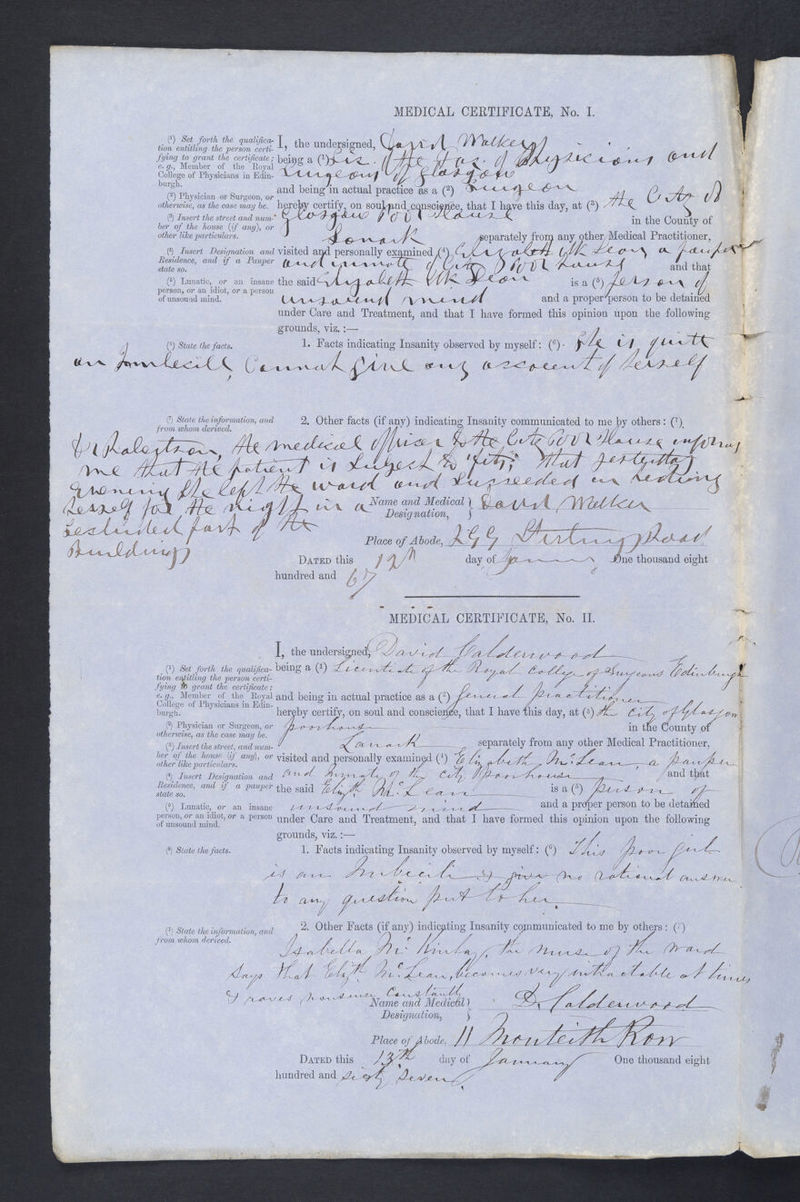 MEDICAL CERTIFICATE, No. I.
(¹) Set forth the qualifica-
tion entitling the person certi-
fying to grant the certificate;
e. g., Member of the Royal
College of Physicians in Edin-
burgh.
(²) Physician or Surgeon, or
otherwise, as the case may be.
(³) Insert the street and num-
ber of the house (if any), or
other like particulars.
(⁴) Insert Designation and
Residence, and if a Pauper
state so.
(⁵) Lunatic, or an insane
person, or an idiot, or a person
of unsound mind.
I, the undersigned, David Walker
being a (¹) Lic. of the Fac. of Physicians and
Surgeons of Glasgow
and being in actual practice as a (²) Surgeon
hereby certify, on soul and conscience, that I have this day, at (³) the City
Glasgow Poor House in the County of
Lanark separately from any other Medical Practitioner,
visited and personally examined (⁴) Elizabeth McLean a pauper
and inmate of City Poor house and that
the said Elizabeth McLean is a (⁵) person of
unsound mind and a proper person to be detained
under Care and Treatment, and that I have formed this opinion upon the following
grounds, viz. :—
(⁶) State the facts.
1. Facts indicating Insanity observed by myself: (⁶) She is quite
an Imbecile, Cannot give any account of herself
(⁷) State the information, and
from whom derived.
2. Other facts (if any) indicating Insanity communicated to me by others: (⁷)
Dr Robertson, the medical officer to the City Poor House informs
me that the patient is subject to "fits;" that yesterday
evening she left the ward and succeeded in hiding
herself for the night in a
secluded part of the
Buildings
Name and Medical
Designation, David Walker
Place of Abode, Stirling Road
DATED this 12th day of One thousand eight
hundred and 67
MEDICAL CERTIFICATE, No. II.
(¹) Set forth the qualifica-
tion entitling the person certi-
fying to grant the certificate;
e. g., Member of the Royal
College of Physicians in Edin-
burgh.
(²) Physician or Surgeon, or
otherwise, as the case may be.
(³) Insert the street, and num-
ber of the house (if any), or
other like particulars.
(⁴) Insert Designation and
Residence, and if a pauper
state so.
(⁵) Lunatic, or an insane
person, or an idiot, or a person
of unsound mind.
I, the undersigned, David Calderwood
being a (¹) Licentiate of the Royal College of Surgeons Edinburgh
and being in actual practice as a (²) General practitioner
hereby certify, on soul and conscience, that I have this day, at (³) the City of Glasgow
poorhouse in the County of
Lanark separately from any other Medical Practitioner,
visited and personally examined (⁴) Elizabeth McLean, a pauper
and inmate of the City Poorhouse and that
the said Elizth McLean is a (⁵) person of
unsound mind and a proper person to be detained
under Care and Treatment, and that I have formed this opinion upon the following
grounds, viz. :—
(⁶) State the facts.
1. Facts indicating Insanity observed by myself: (⁶) This poor girl
is an Imbecile & gives no rational answer
to any question put to her.
(⁷) State the information, and
from whom derived.
2. Other Facts (if any) indicating Insanity communicated to me by others: (⁷)
Isabella McKinlay, the nurse of the ward
says that Elizth McLean, becomes very intractable at times
& raves nonsense Constantly
Name and Medical
Designation, D. Calderwood
Place of Abode, 11 Monteith Row
DATED this 13th day of January One thousand eight
hundred and sixty seven